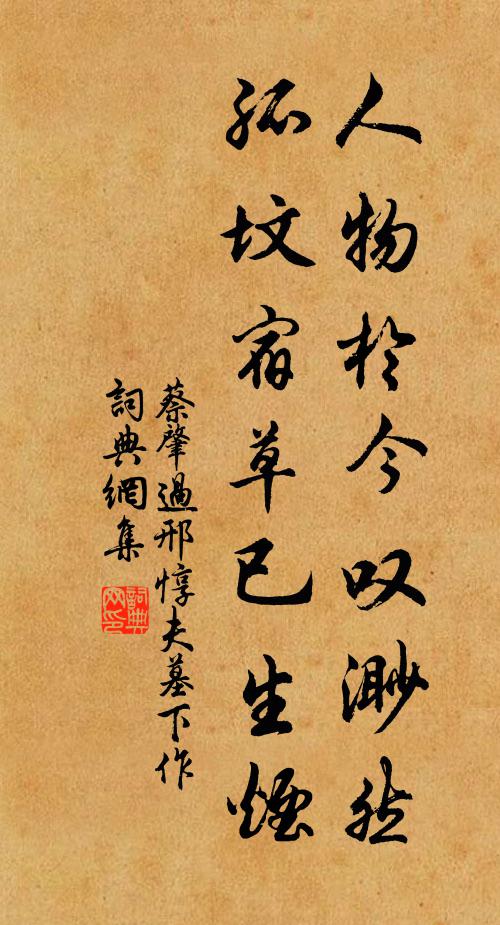 人物於今叹渺然
孤坟宿草已生煙
蔡肇過邢惇夫墓下作
詞典網集
詞典网印